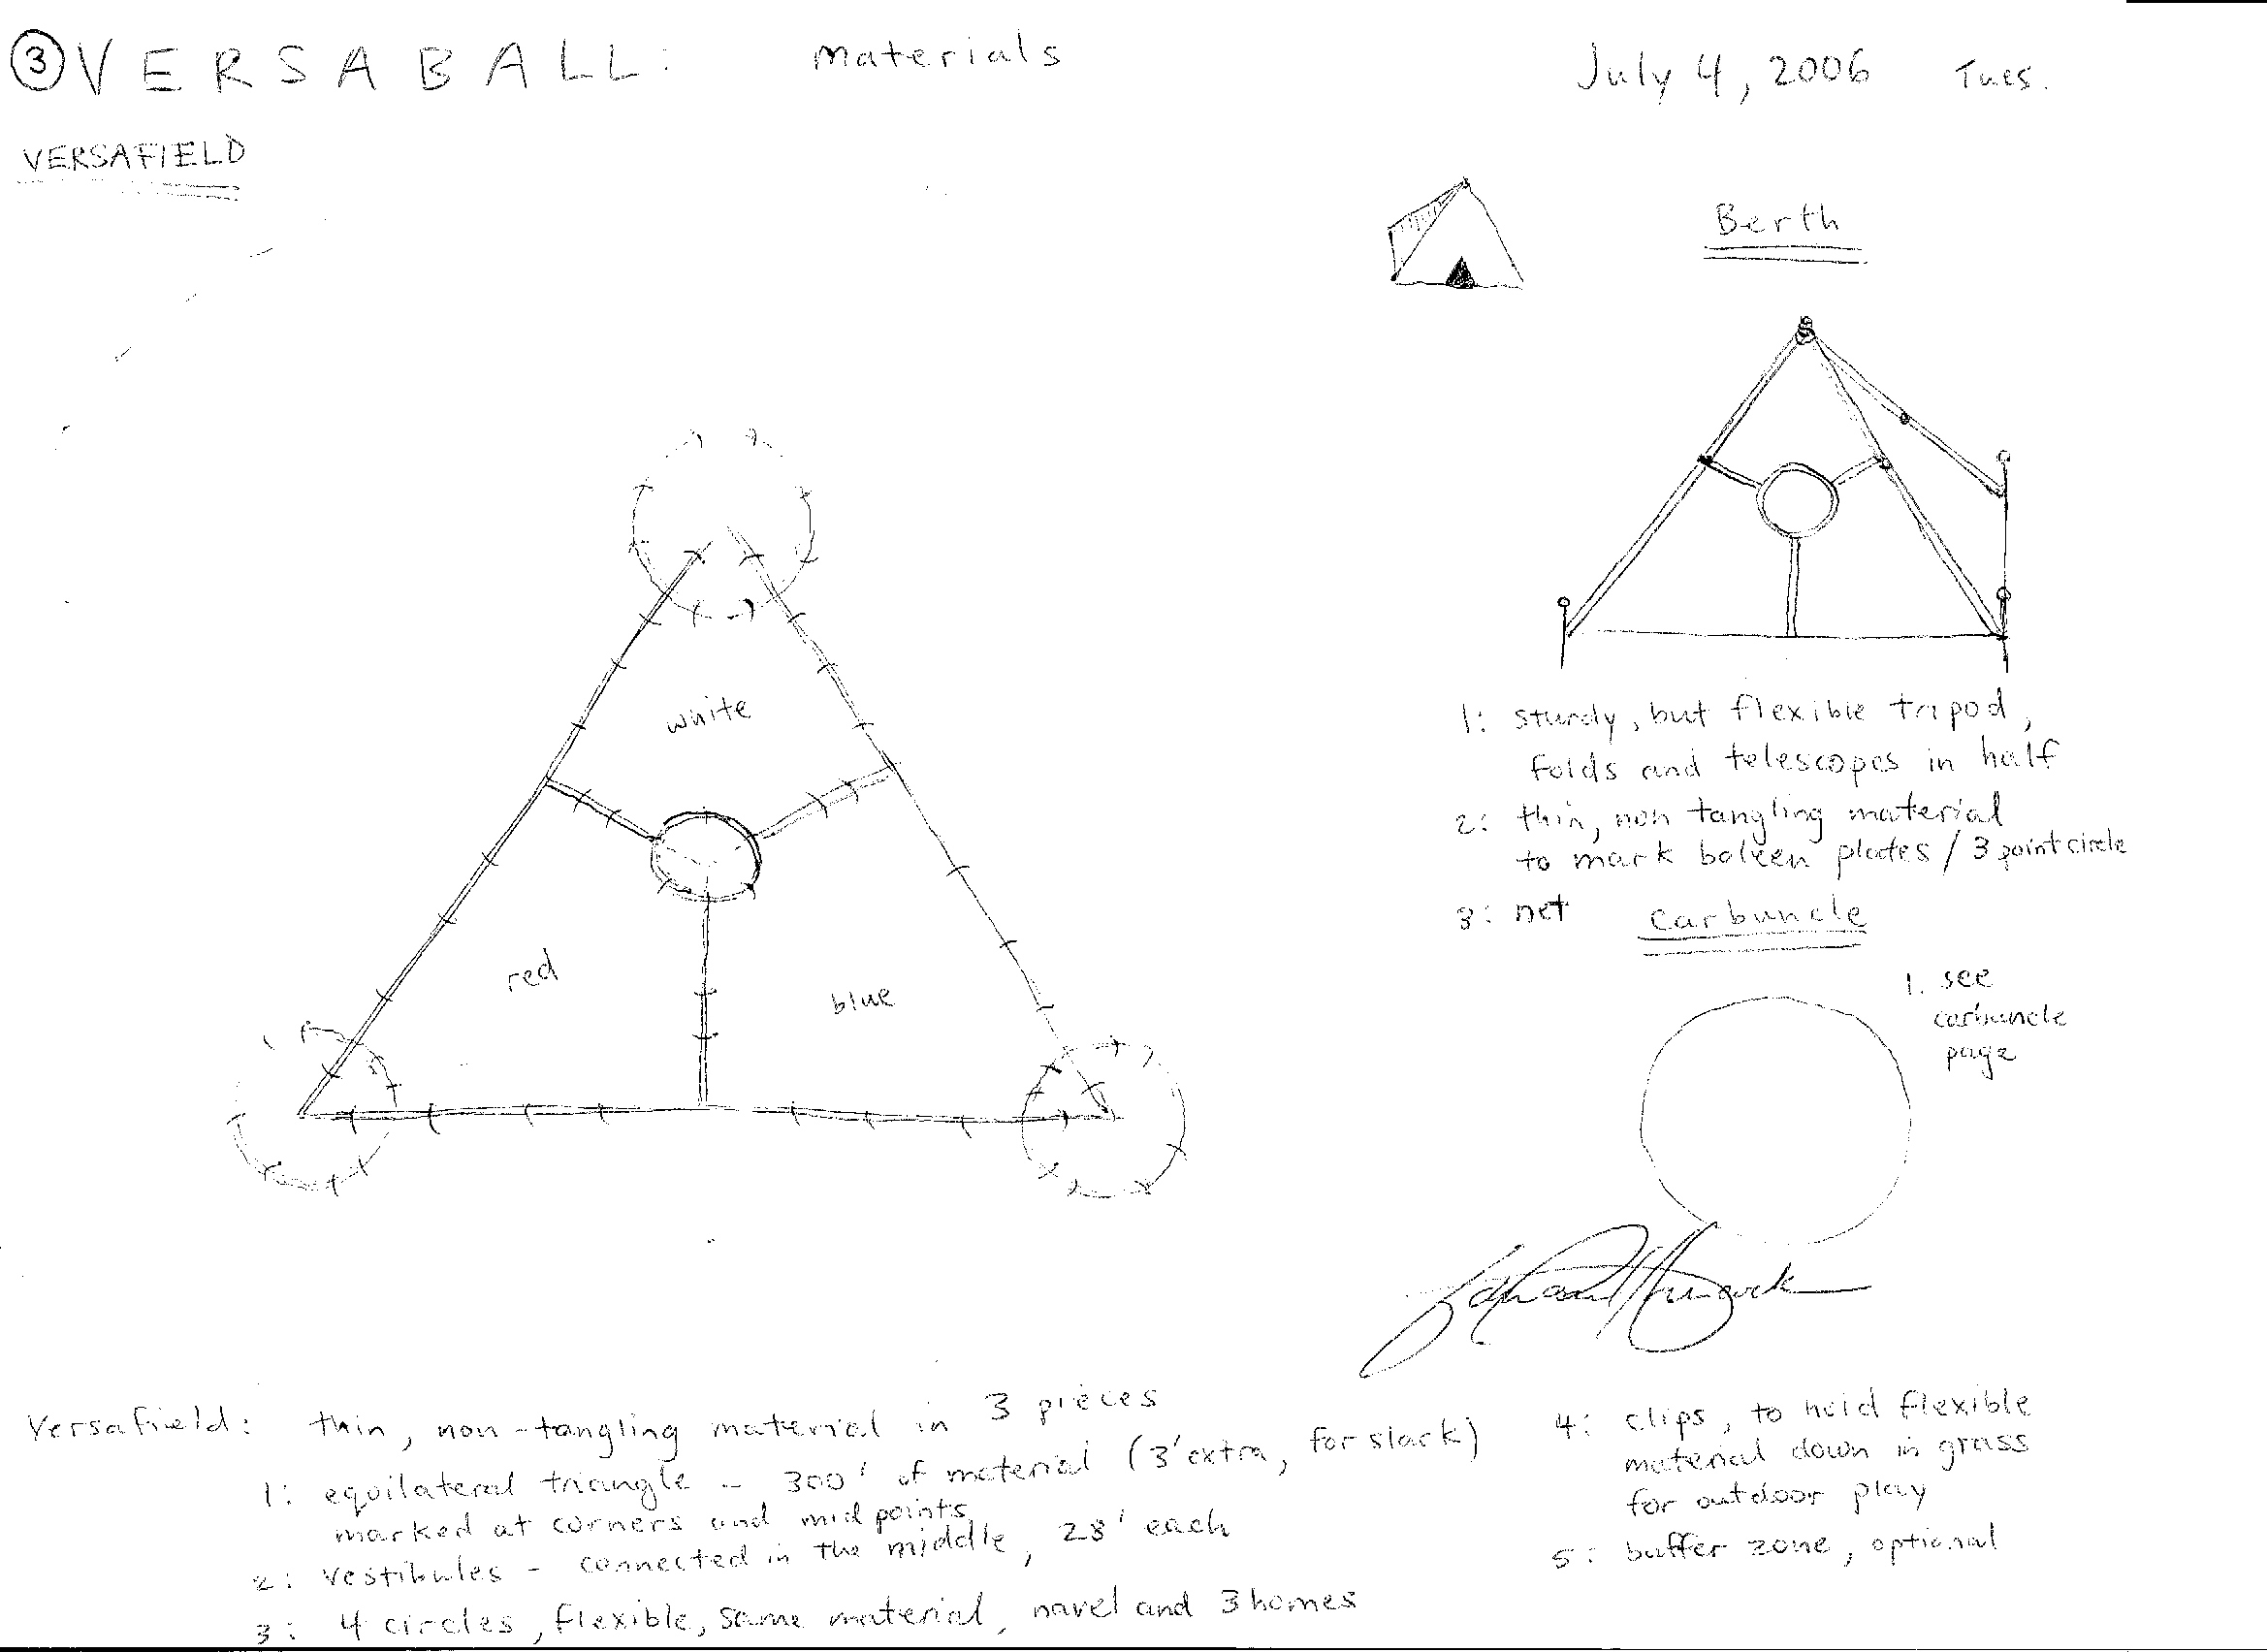 3 VERSABALL: materials July 4, 2006 Tues.
VERSAFIELD
Berth
white
red
blue
1: sturdy, but flexible tripod,
folds and telescopes in half
2: thin, non tangling material
to mark baleen plates / 3 point circle
3: net
Carbuncle
1. see
carbuncle
page
Versafield: thin, non-tangling material in 3 pieces
1: equilateral triangle - 300' of material (3' extra, for slack)
marked at corners and midpoints
2: vestibules - connected in the middle, 28' each
3: 4 circles, flexible, same material, navel and 3 homes
4: clips, to hold flexible
material down in grass
for outdoor play
5: buffer zone, optional